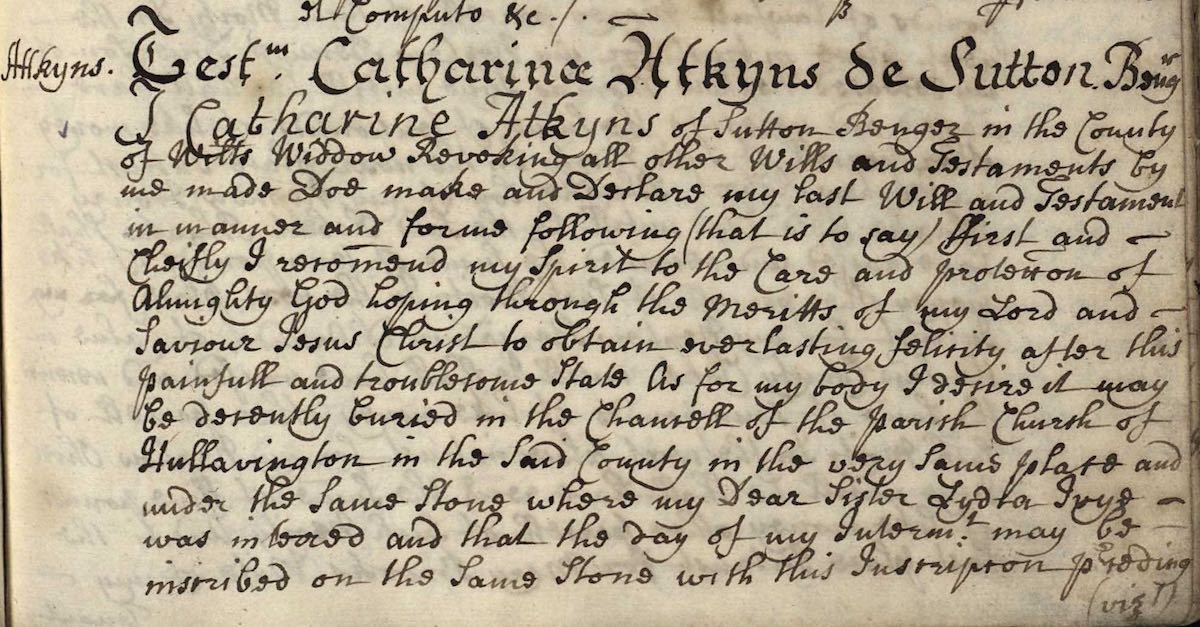 et Computo &c./.
Atkyns.
Testm. Catharinæ Atkyns de Sutton. Bengr
I Catharine Atkyns of Sutton Benger in the County
of Wilts Widdow Revoking all other Wills and Testaments by
me made Doe make and Declare my last Will and Testament
in manner and forme following (that is to say) ffirst and
Cheifly I recom̄end my Spirit to the Care and proteccon of
Almighty God hoping through the Meritts of my Lord and
Saviour Jesus Christ to obtain everlasting felicity after this
painfull and troublesome State As for my body I desire it may
be decently buried in the Chancell of the Parish Church of
Hullavington in the Said County in the very Same place and
under the Same Stone where my Dear Sister Lydia Ivye
was interred and that the day of my Intermt. may be
inscribed on the Same Stone with this Inscripcon preding
(vizt)